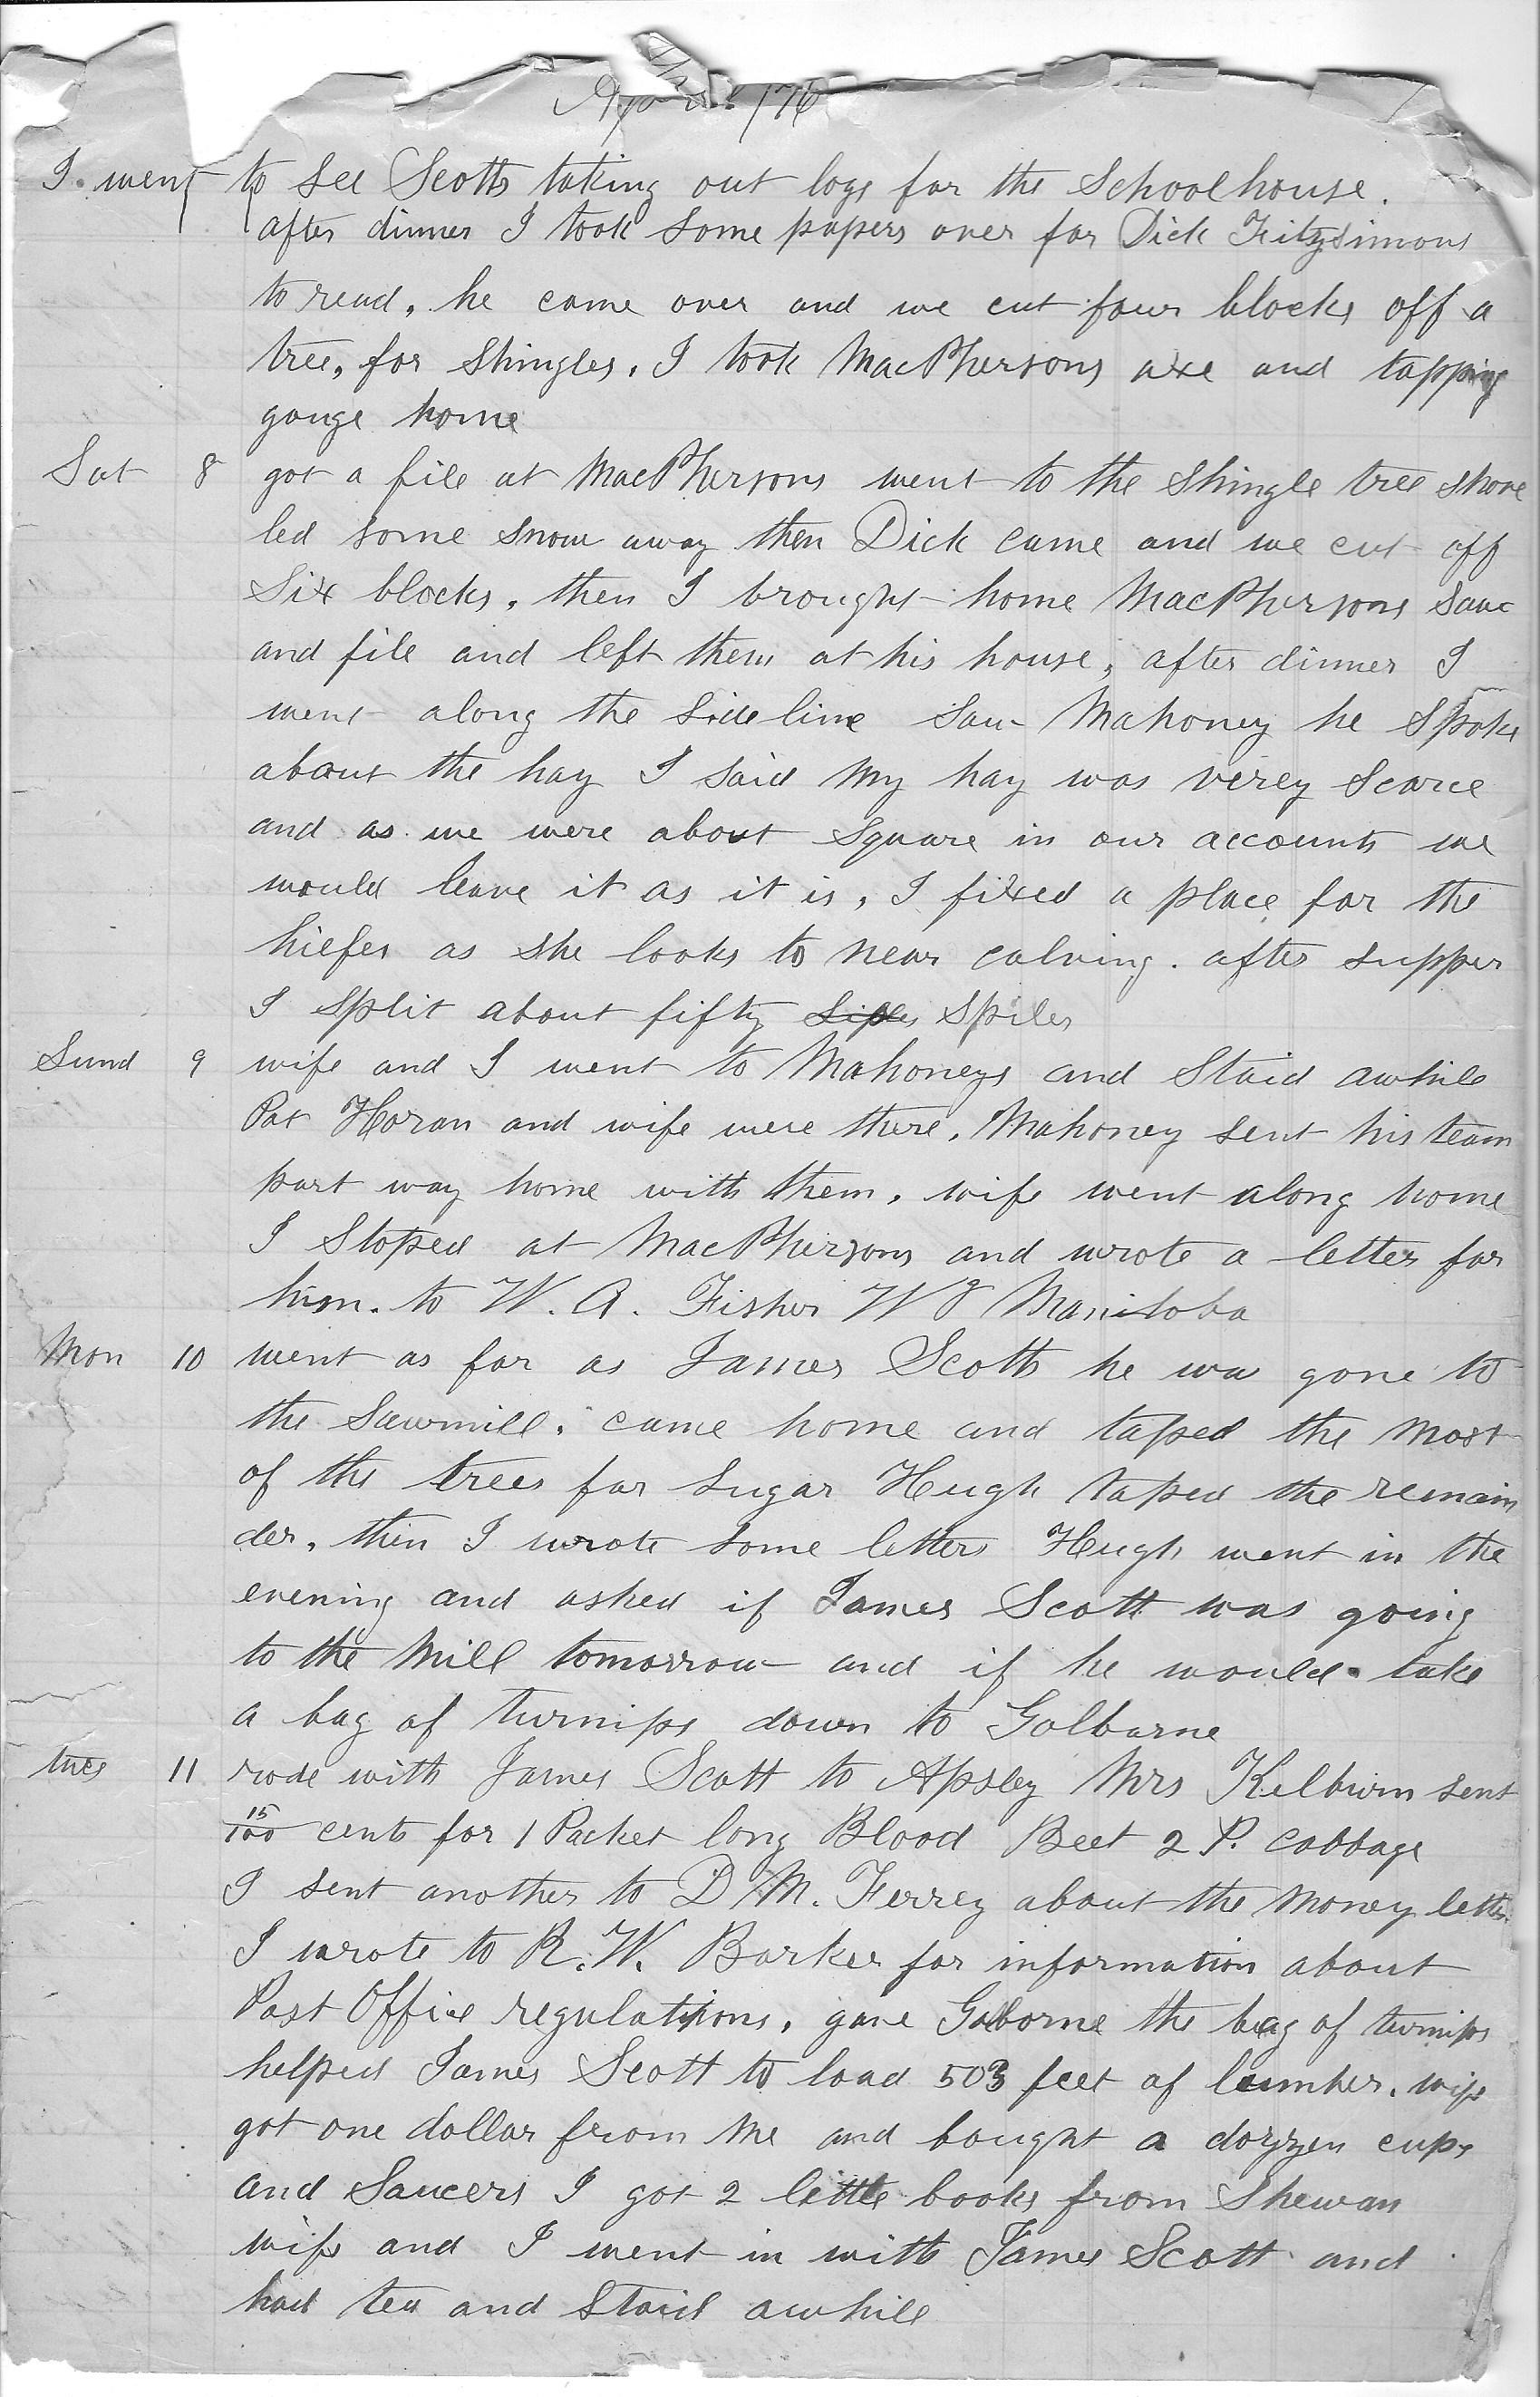 April /76
I went to see Scotts taking out logs for the Schoolhouse.
after dinner I took some papers over for Dick Fitzsimons
to read. he came over and we cut four blocks off a
tree, for Shingles. I took MacPhersons axe and tapping
gouge home
Sat 8 got a file at MacPhersons went to the Shingle tree shove
led some snow away then Dick came and we cut off
Six blocks. then I brought home MacPhersons Saw
and file and left them at his house, after dinner I
went along the Side line Saw Mahoney he Spoke
about the hay I said My hay was verey Scarce
and as we were about Square in our accounts we
would leave it as it is, I fixed a place for the
hiefer as she looks to near calving. after supper
I split about fifty Siples Spiles
Sund 9 wife and I went to Mahoneys and Staid awhile
Pat Horan and wife were there. Mahoney sent his team
part way home with them, wife went along home
I Stoped at MacPhersons and wrote a letter for
him. to W. A. Fisher Manitoba
Mon 10 went as far as James Scotts he was gone to
the Sawmill. came home and taped the Most
of the trees for Sugar Hugh taped the remain
der. then I wrote some letters Hugh went in the
evening and asked if James Scott was going
to the Mill tomorrow and if he would take
a bag of turnips down to Golborne
tues 11 rode with James Scott to Apsley Mrs Kilburn sent
15/100 cents for 1 Packet long Blood Beet 2 P. cabbage
I sent another to D M. Ferrey about the Money letter.
I wrote to R. W. Barker for information about
Post Office regulations, gave Golborne the bag of turnips
helped James Scott to load 503 feet of lumber. wife
got one dollar from Me and bought a dozzen cups
and Saucers I got 2 little books from Shewan
wife and I went in with James Scott and
had tea and Staid awhile